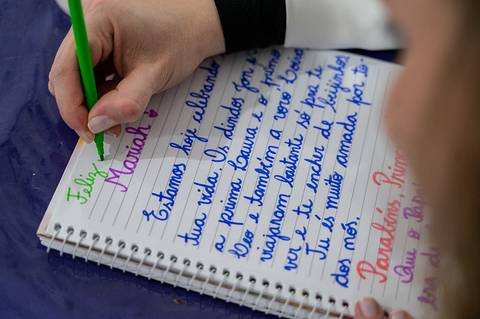 Feliz
Mariah
Estamos hoje celebrando
tua vida. Os dindos Jon e
a prima Laura e o primo
Leo e também a vovó
viajaram bastante só pra te
ver e te encher de beijinhos
Tu és muito amada por to-
dos nós.
Parabéns, Prin
Que o Pap